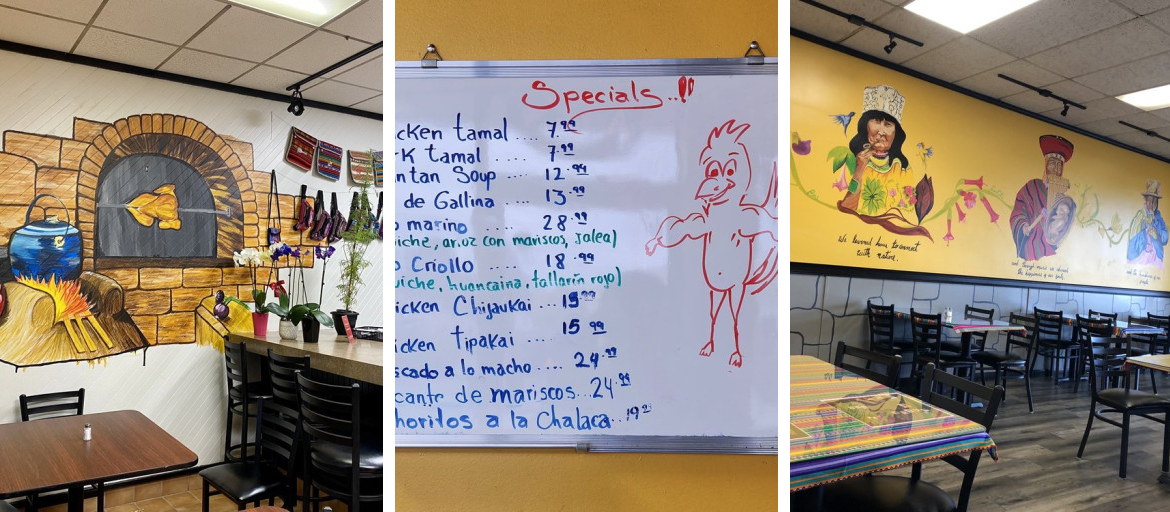 Specials..!!
cken tamal .... 7.99
rk tamal ..... 7.99
ntan Soup .... 12.99
de Gallina .... 13.99
o marino .... 28.99
iche, arroz con mariscos, jalea)
o Criollo .... 18.99
iche, huancaina, tallarin rojo)
icken Chijaukai ... 15.99
icken tipakai .... 15.99
scado a lo macho .... 24.99
cante de mariscos...24.99
horitos a la Chalaca..19.99
We learned how to connect
with nature.
and through music we showed
the happiness of our